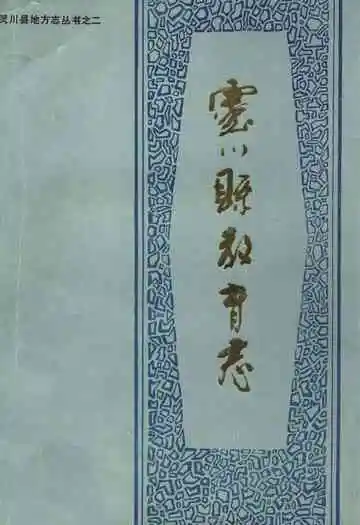 灵川县地方志丛书之二
靈川縣教育志